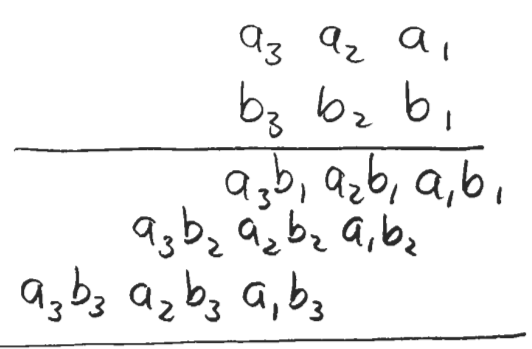 a₃ a₂ a₁
b₃ b₂ b₁
a₃b₁ a₂b₁ a₁b₁
a₃b₂ a₂b₂ a₁b₂
a₃b₃ a₂b₃ a₁b₃